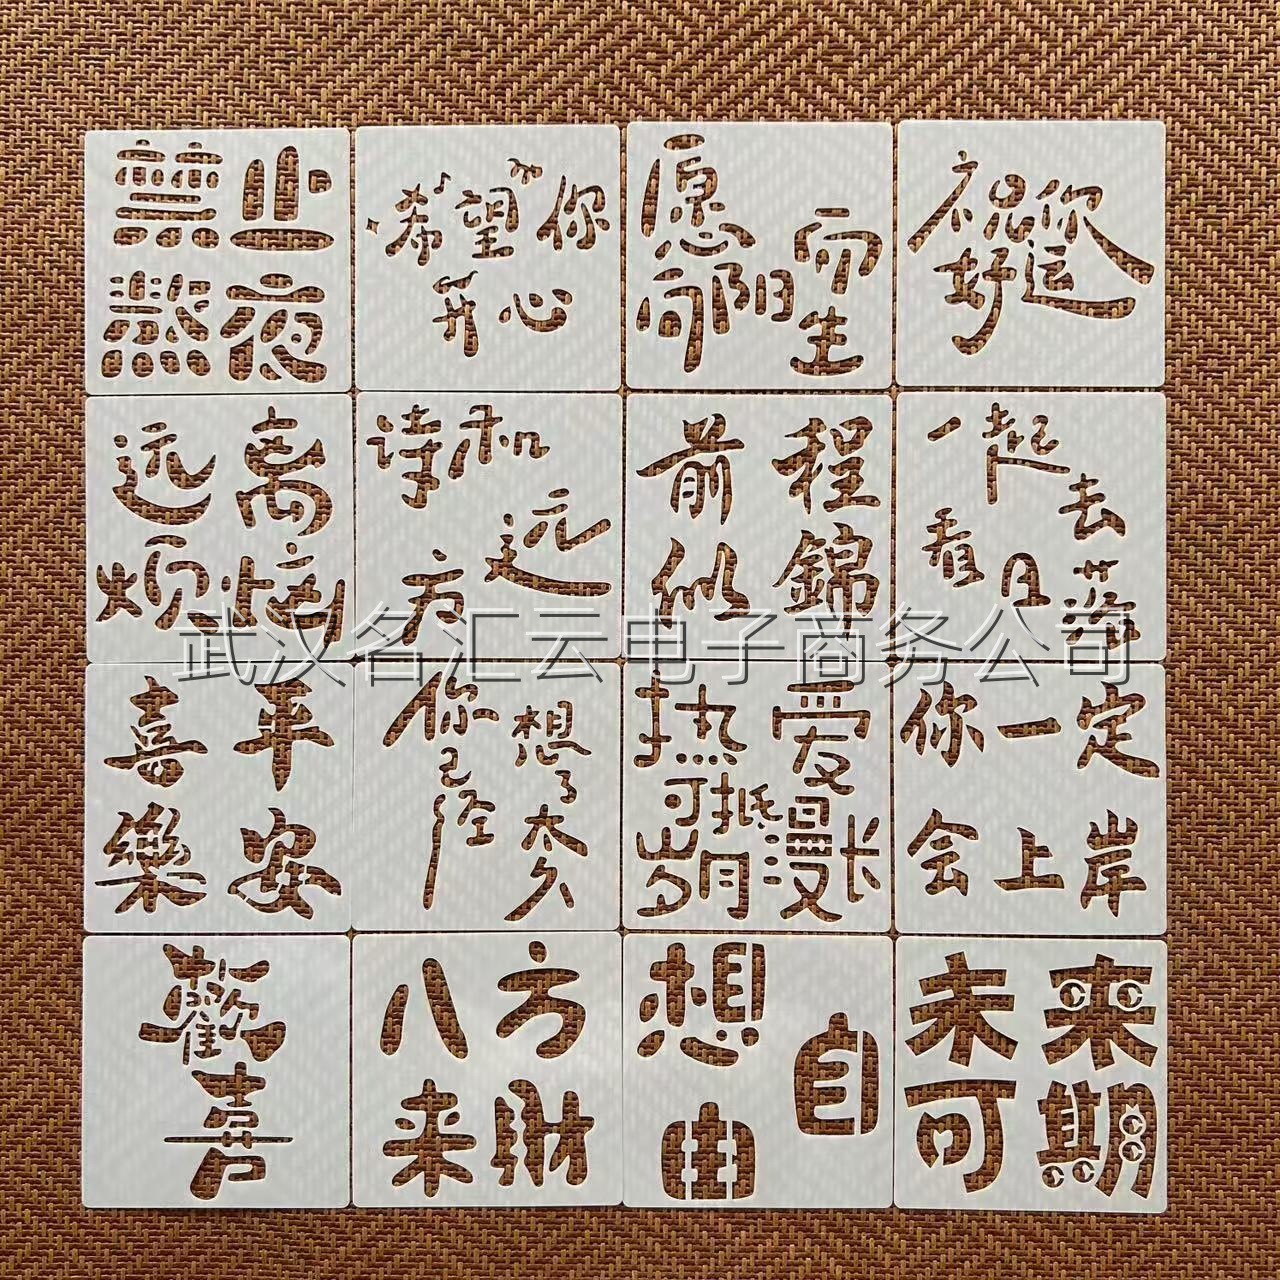 禁止
熬夜
希望你
开心
愿
向阳
而生
祝你
好运
远离
烦恼
诗和
远
方
前程
似錦
一起去
看日落
喜
樂
平
安
你
已经
想
了太久
热爱
可抵
岁月漫长
你一定
会上岸
歡
喜
八方
来財
想
自
由
未来
可期
武汉名汇云电子商务公司